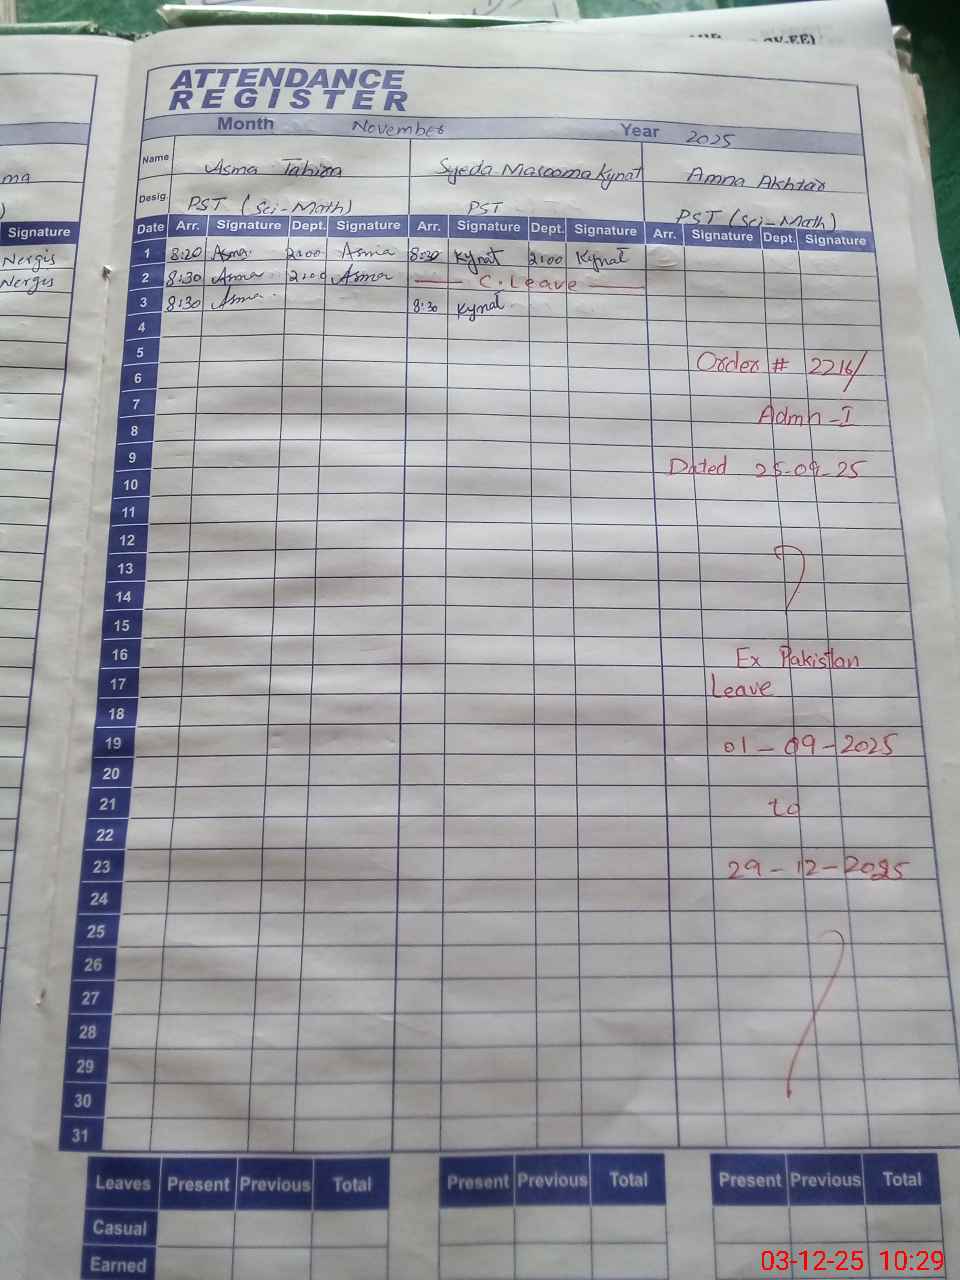 OV-EE)
ATTENDANCE
REGISTER
Month November Year 2025
ma
Name Asma Tahira Syeda Masooma Kynat Amna Akhtar
Desig. PST (Sci-Math) PST PST (Sci-Math)
Signature Date Arr. Signature Dept. Signature Arr. Signature Dept. Signature Arr. Signature Dept. Signature
Nergis 1 8:20 Asma 2:00 Asma 8:30 Kynat 2:00 Kynat
Nergis 2 8:30 Asma 2:00 Asma C.Leave
3 8:30 Asma 8:30 Kynat
4
5 Order # 2216/
6
7 Admn-I
8
9 Dated 25-09-25
10
11
12
13
14
15
16 Ex Pakistan
17 Leave
18
19 01-09-2025
20
21 to
22
23 29-12-2025
24
25
26
27
28
29
30
31
Leaves Present Previous Total Present Previous Total Present Previous Total
Casual
Earned
03-12-25 10:29